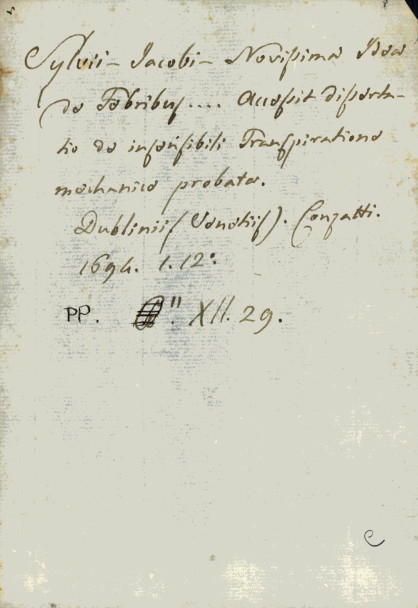 Sylvii – Jacobi – Novissima Idea
de Febribus .... Accessit disserta-
tio de insensibili Transpiratione
mechanice probata.
Dubliniis (Venetiis). Conzatti.
1694. 1. 12°
PP. ". XII. 29.
C